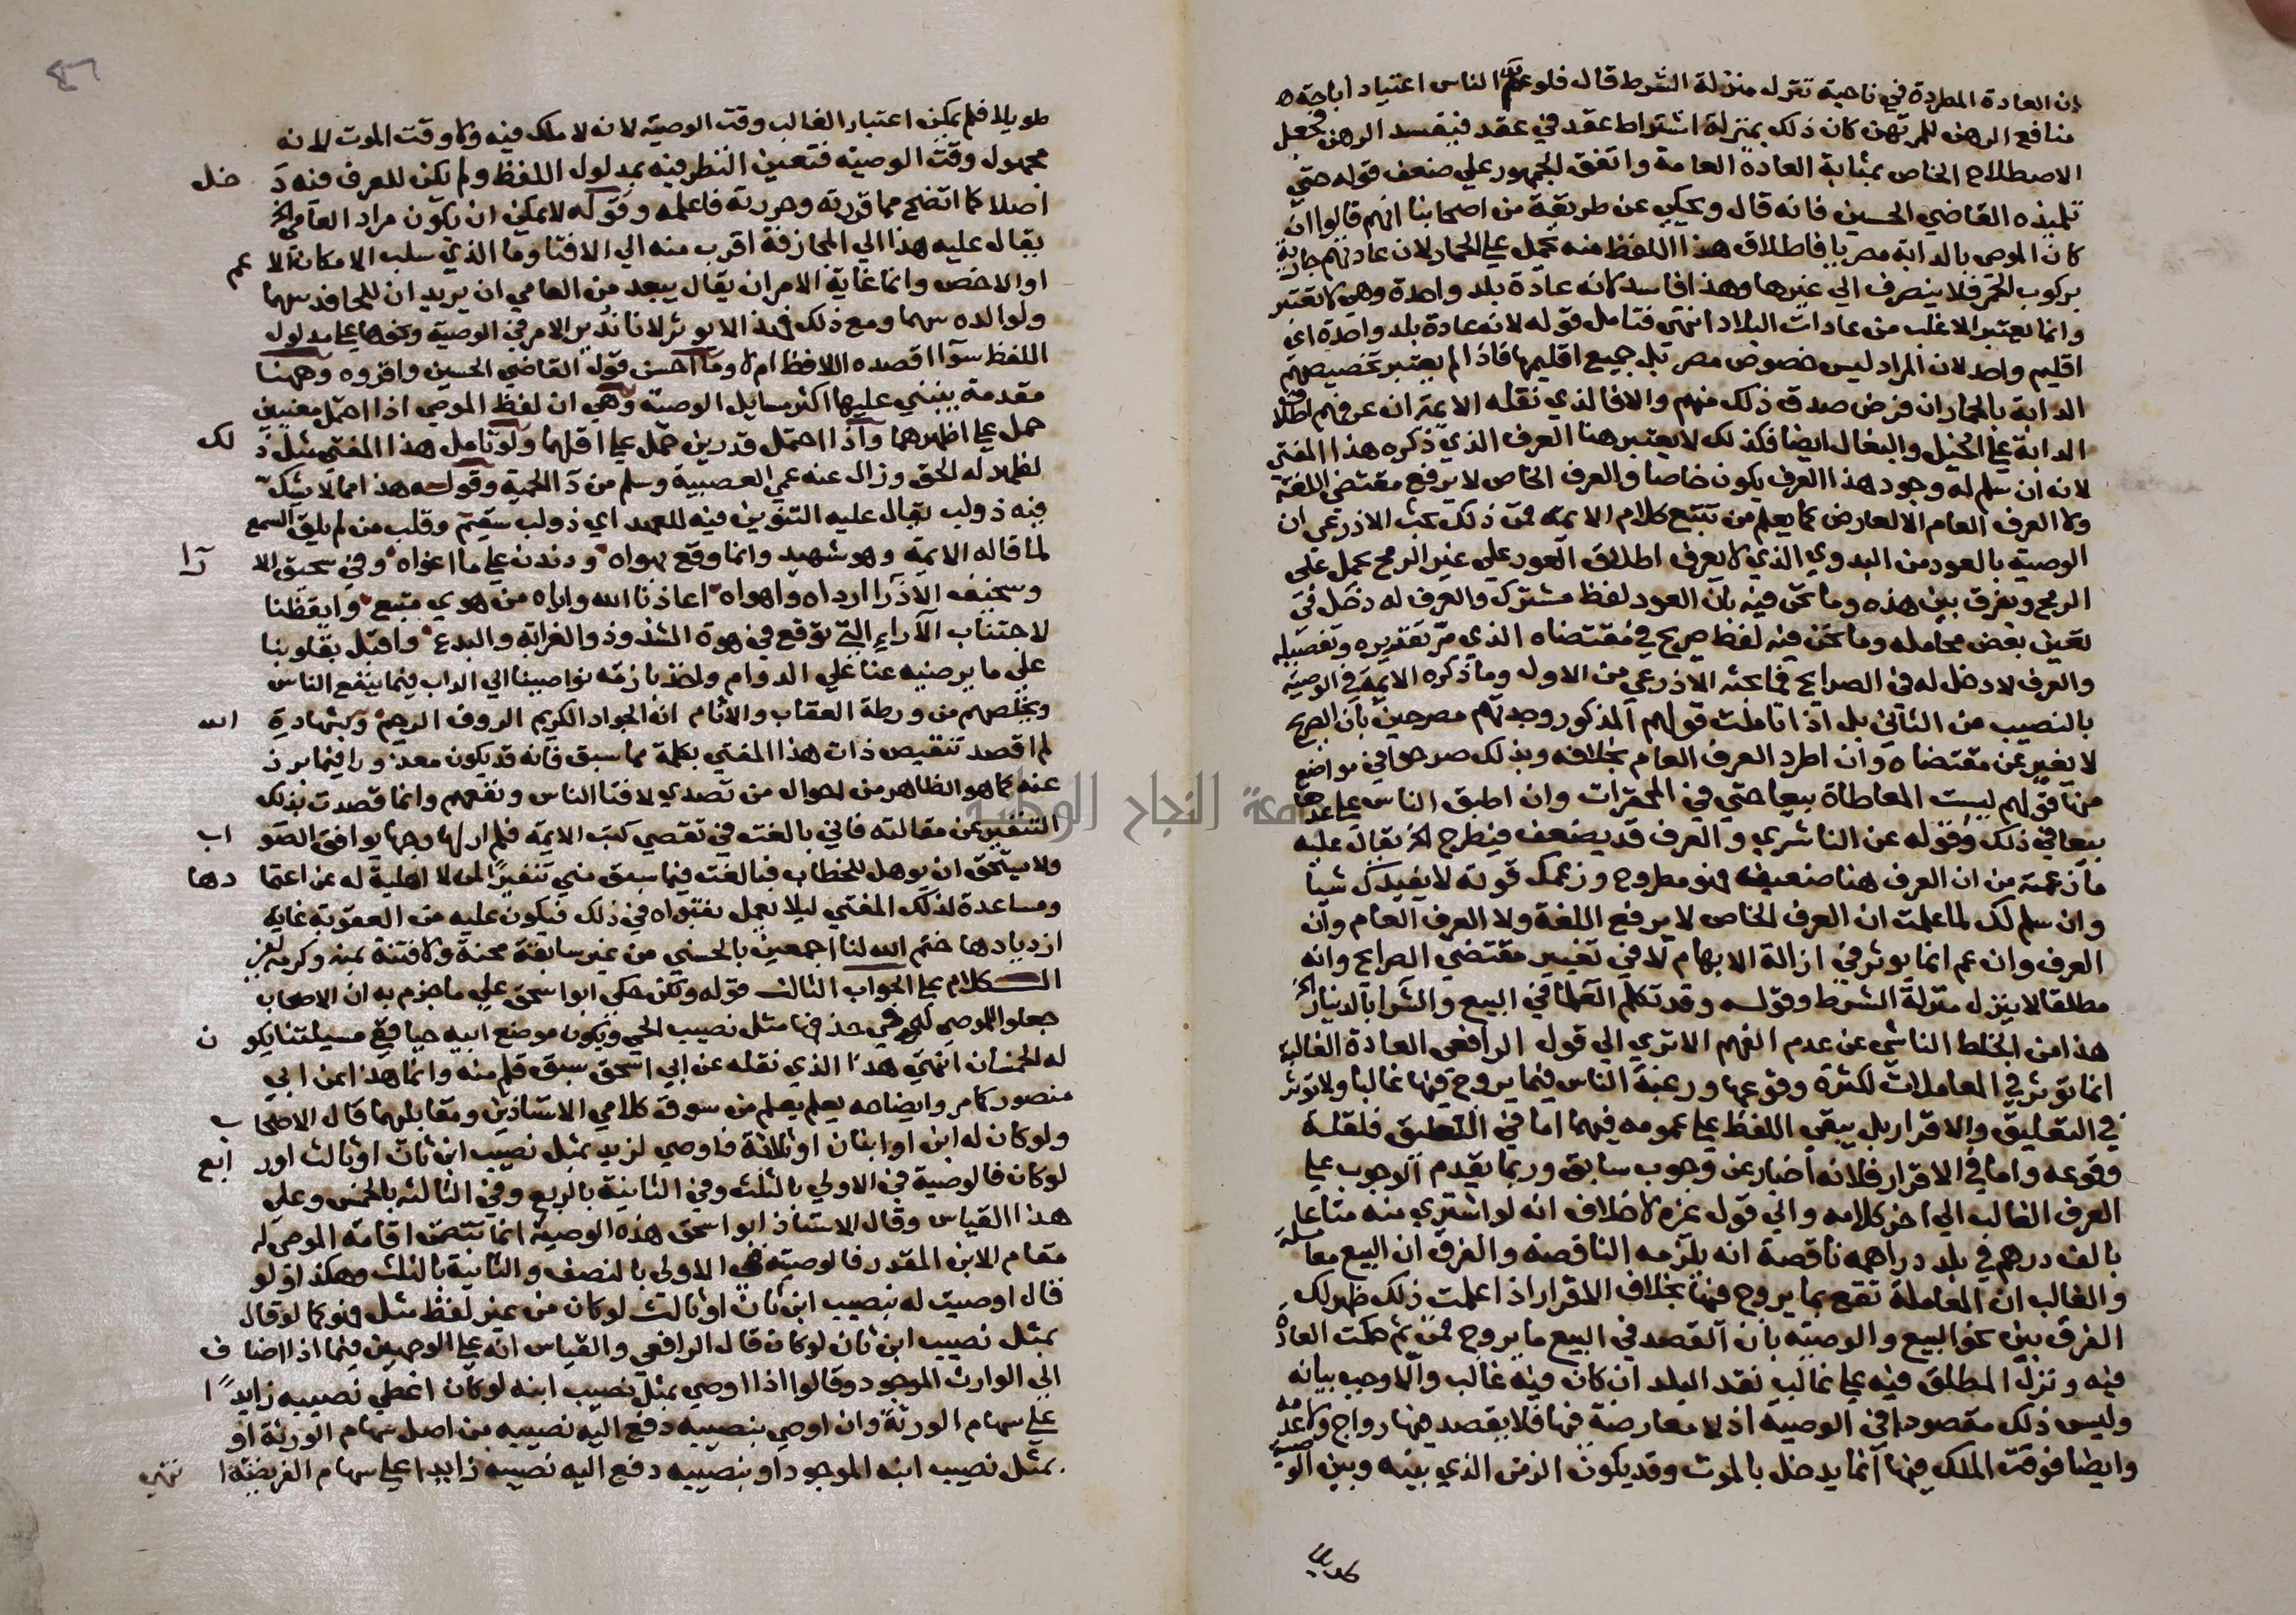 ان العادة المطردة في ناحية تنزل منزلة الشرط قال فلو عم الناس اعتياد اباحة
منافع الرهن للمرتهن كان ذلك بمنزلة اشتراط عقد في عقد فيفسد الرهن فجعل
الاصطلاح الخاص بمثابة العادة العامة واتفق الجمهور علي ضعف قوله حتي
تلميذه القاضي الحسين فانه قال ويحكي عن طريقة من اصحابنا انهم قالوا ان
كان الموصي بالدابة مصريا فاطلاق هذا اللفظ منه يحمل علي الحمار لان عادتهم جارية
بركوب الحمر فلا ينصرف الي غيرها وهذا فاسد لانه عادة بلد واحدة وهي لا تعتبر
وانما يعتبر الاغلب من عادات البلاد انتهي فتامل قوله لانه عادة بلد واحدة اي
اقليم واحد لان المراد ليس خصوص مصر بل جميع اقليمها فاذا لم يعتبر تخصيصهم
الدابة بالحمار ان فرض صدق ذلك منهم والا فالذي نقله الايمة ان عرفهم اطلاق
الدابة علي الخيل والبغال ايضا فكذلك لا يعتبر هنا العرف الذي ذكره هذا المفتي
لانه ان سلم له وجود هذا العرف يكون خاصا والعرف الخاص لا يرفع مقتضي اللغة
ولا العرف العام الا لعارض كما يعلم من تتبع كلام الايمة فمن ذلك بحث الاذرعي ان
الوصية بالعود من البدوي الذي لا يعرف اطلاق العود علي غير الرمح يحمل علي
الرمح ويفرق بين هذه وما نحن فيه بان العود لفظ مشترك والعرف له دخل في
تعيين بعض محامله وما نحن فيه لفظ صريح في مقتضاه الذي مر تقريره وتفصيله
والعرف لا دخل له في الصرايح فما بحثه الاذرعي من الاول وما ذكره الايمة في الوصية
بالنصيب من الثاني بل اذا تاملت قولهم المذكور وجدتهم مصرحين بان الصريح
لا يغير عن مقتضاه وان اطرد العرف العام بخلافه وبذلك صرحوا في مواضع
منها قولهم ليست المعاطاة بيعا حتي في المحقرات وان اطبق الناس علي عدها
بيعا في ذلك وقوله عن الناشري والعرف قد يضعف فيطرح الخ يقال عليه
ما زعمته من ان العرف هنا ضعيف فهو مطروح وزعمك قوته لا يفيدك شيا
وان سلم لك لما علمت ان العرف الخاص لا يرفع اللغة ولا العرف العام وان
العرف وان عم انما يوثر في ازالة الابهام لا في تغيير مقتضي الصرايح وانه
مطلقا لا ينزل منزلة الشرط وقوله وقد تكلم العلما في البيع والشرا بالدينار الخ
هذا من الخلط الناشي عن عدم الفهم الا تري الي قول الرافعي العادة الغالبة
انما توثر في المعاملات لكثرة وقوعها ورغبة الناس فيما يروج فيها غالبا ولا توثر
في التعليق والاقرار بل يبقي اللفظ علي عمومه فيهما اما في التعليق فلقلة
وقوعه واما في الاقرار فلانه اخبار عن وجوب سابق وربما يقدم الوجوب علي
العرف الغالب الي اخر كلامه والي قول غيره لا خلاف انه لو اشتري منه متاعا
بالف درهم في بلد دراهمه ناقصة انه يلزمه الناقصة والفرق ان البيع معاملة
والغالب ان المعاملة تقع بما يروج فيها بخلاف الاقرار اذا علمت ذلك ظهر لك
الفرق بين نحو البيع والوصية بان القصد في البيع ما يروج فمن ثم حكمت العادة
فيه ونزل المطلق فيه علي غالب نقد البلد ان كان فيه غالب والا وجب بيانه
وليس ذلك مقصودا في الوصية اذ لا معارضة فيها فلا يقصد فيها رواج ولا عدمه
وايضا فوقت الملك فيها انما يدخل بالموت وقد يكون الزمن الذي بينه وبين الوصية
طويلا فلم يمكن اعتبار الغالب وقت الوصية لانه لا ملك فيه ولا وقت الموت لانه
مجهول وقت الوصية فتعين النظر فيه بمدلول اللفظ ولم يكن للعرف فيه دخل
اصلا كما اتضح مما قررته وحررته فاعلمه وقوله لا يمكن ان يكون مراد العامي الخ
يقال عليه هذا الي المجازفة اقرب منه الي الافتا وما الذي سلب الامكان الاعم
او الاخص وانما غاية الامر ان يقال يبعد من العامي ان يريد ان للحافد سهما
ولوالده سهما ومع ذلك فهذا لا يوثر لانا ندير الامر في الوصية ونحوها علي مدلول
اللفظ سوا اقصده اللافظ ام لا وما احسن قول القاضي الحسين واقروه وههنا
مقدمة ينبني عليها اكثر مسايل الوصية وهي ان لفظ الموصي اذا احتمل معنيين
حمل علي اظهرهما واذا احتمل قدرين حمل علي اقلهما ولو تامل هذا المفتي مثل ذلك
لظهر له الحق وزال عنه عمي العصبية وسلم من دا الحمية وقوله هذا مما لا يشك
فيه ذو لب يقال عليه التنوين فيه للعهد اي ذو لب سقيم وقلب من لم يلق السمع
لما قاله الايمة وهو شهيد وانما وقع بهواه ودندن علي ما اغواه وفي سحيق الارا
وسخيف الاذرا ارداه واهواه اعاذنا الله واياه من هوي متبع وايقظنا
لاجتناب الآراء التي توقع في هوة الشذوذ والغرابة والبدع واقبل بقلوبنا
علي ما يرضيه عنا علي الدوام واخذ بازمة نواصينا الي الداب فيما ينفع الناس
ويخلصهم من ورطة العقاب والاثام انه الجواد الكريم الروف الرحيم وبشهادة الله
لم اقصد تنقيص ذات هذا المفتي بكلمة مما سبق فانه قد يكون معذورا فيما برز
عنه كما هو الظاهر من احوال من تصدي لافتا الناس ونفعهم وانما قصدت بذلك
التنفير عن مقالته فاني بالغت في تقصي كتب الايمة فلم ار لها وجها يوافق الصواب
ولا يستحق ان يوهل للخطاب فبالغت فيما سبق مني تنفيرا لمن لا اهلية له عن اعتمادها
ومساعدة لذلك المفتي ليلا يعمل بفتواه في ذلك فيكون عليه من العقوبة غاية
ازديادها ختم الله لنا اجمعين بالحسني من غير سابقة محنة ولا فتنة بمنه وكرمه
الكلام علي الجواب الثالث قوله ولكن حكي ابو اسحق علي ما جزم به ان الاصحاب
جعلوا للموصي له في حذفها مثل نصيب الحي ويكون موضع ابيه حيا ففي مسيلتنا يكون
له الخمسان انتهي هذا الذي نقله عن ابي اسحق سبق قلم منه وانما هذا عن ابي
منصور كما مر وايضاحه يعلم من سوق كلامي الاستاذين ومقابلهما قال الاصحاب
ولو كان له ابن او ابنان او ثلاثة فاوصي لزيد بمثل نصيب ابن ثان او ثالث او رابع
لو كان فالوصية في الاولي بالثلث وفي الثانية بالربع وفي الثالثة بالخمس وعلي
هذا القياس وقال الاستاذ ابو اسحق هذه الوصية انما تتضمن اقامة الموصي له
مقام الابن المقدر فالوصية في الاولي بالنصف والثانية بالثلث وهكذا ولو
قال اوصيت له بنصيب ابن ثان او ثالث لو كان من غير لفظ مثل فهو كما لو قال
بمثل نصيب ابن ثان لو كان قال الرافعي والقياس انه علي الوجهين فيما اذا اضاف
الي الوارث الموجود وقالوا اذا اوصي بمثل نصيب ابنه لو كان اعطي نصيبه زايدا
علي سهام الورثة وان اوصي بنصيبه دفع اليه نصيبه من اصل سهام الورثة او
بمثل نصيب ابنه الموجود او بنصيبه دفع اليه نصيبه زايدا علي سهام الفريضة انتهي
جامعة النجاح الوطنية